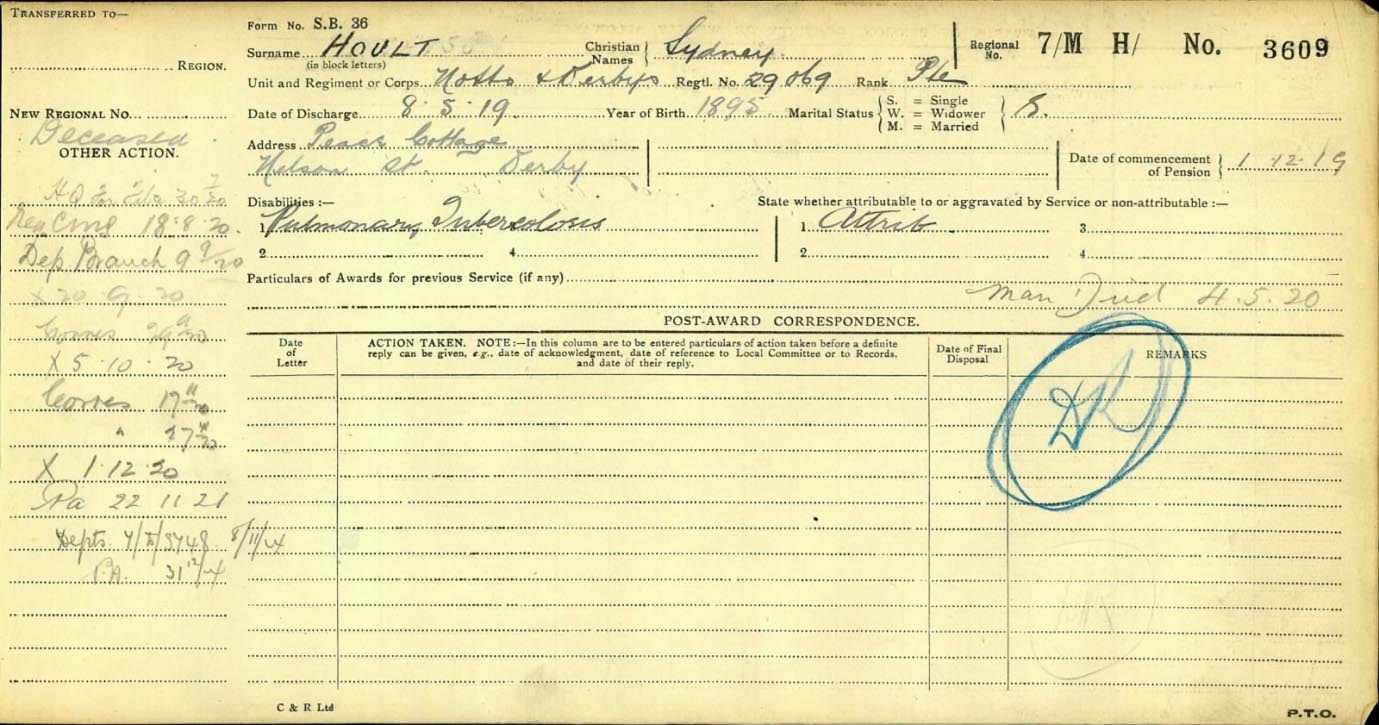 TRANSFERRED TO—
REGION.
NEW REGIONAL No.
Deceased
OTHER ACTION.
18.8.20.
Dep Branch 9 9/20
X 20.9.20
Corres
X 5.10.20
Corres 17 11/20
" 27 11/20
X 1.12.20
Pa 22 11 21
Depts. 8/11/24
P.A. 31 12/24
Form No. S.B. 36
Surname HOULT Christian Names Sydney
(in block letters)
Regional No. 7/M H/ No. 3609
Unit and Regiment or Corps Notts & Derbys Regtl. No. 29069 Rank Pte
Date of Discharge 8.5.19 Year of Birth 1895 Marital Status S. = Single W. = Widower M. = Married S.
Address Cottage
Nelson St. Derby
Date of commencement of Pension 1.12.19
Disabilities :— State whether attributable to or aggravated by Service or non-attributable :—
1 Pulmonary Tubercolosis 1. Attrib 3.
2 4 2. 4.
Particulars of Awards for previous Service (if any)
Man Died 4.5.20
POST-AWARD CORRESPONDENCE.
Date of Letter
ACTION TAKEN. NOTE:—In this column are to be entered particulars of action taken before a definite
reply can be given, e.g., date of acknowledgment, date of reference to Local Committee or to Records,
and date of their reply.
Date of Final Disposal
REMARKS
C & R Ltd
P.T.O.